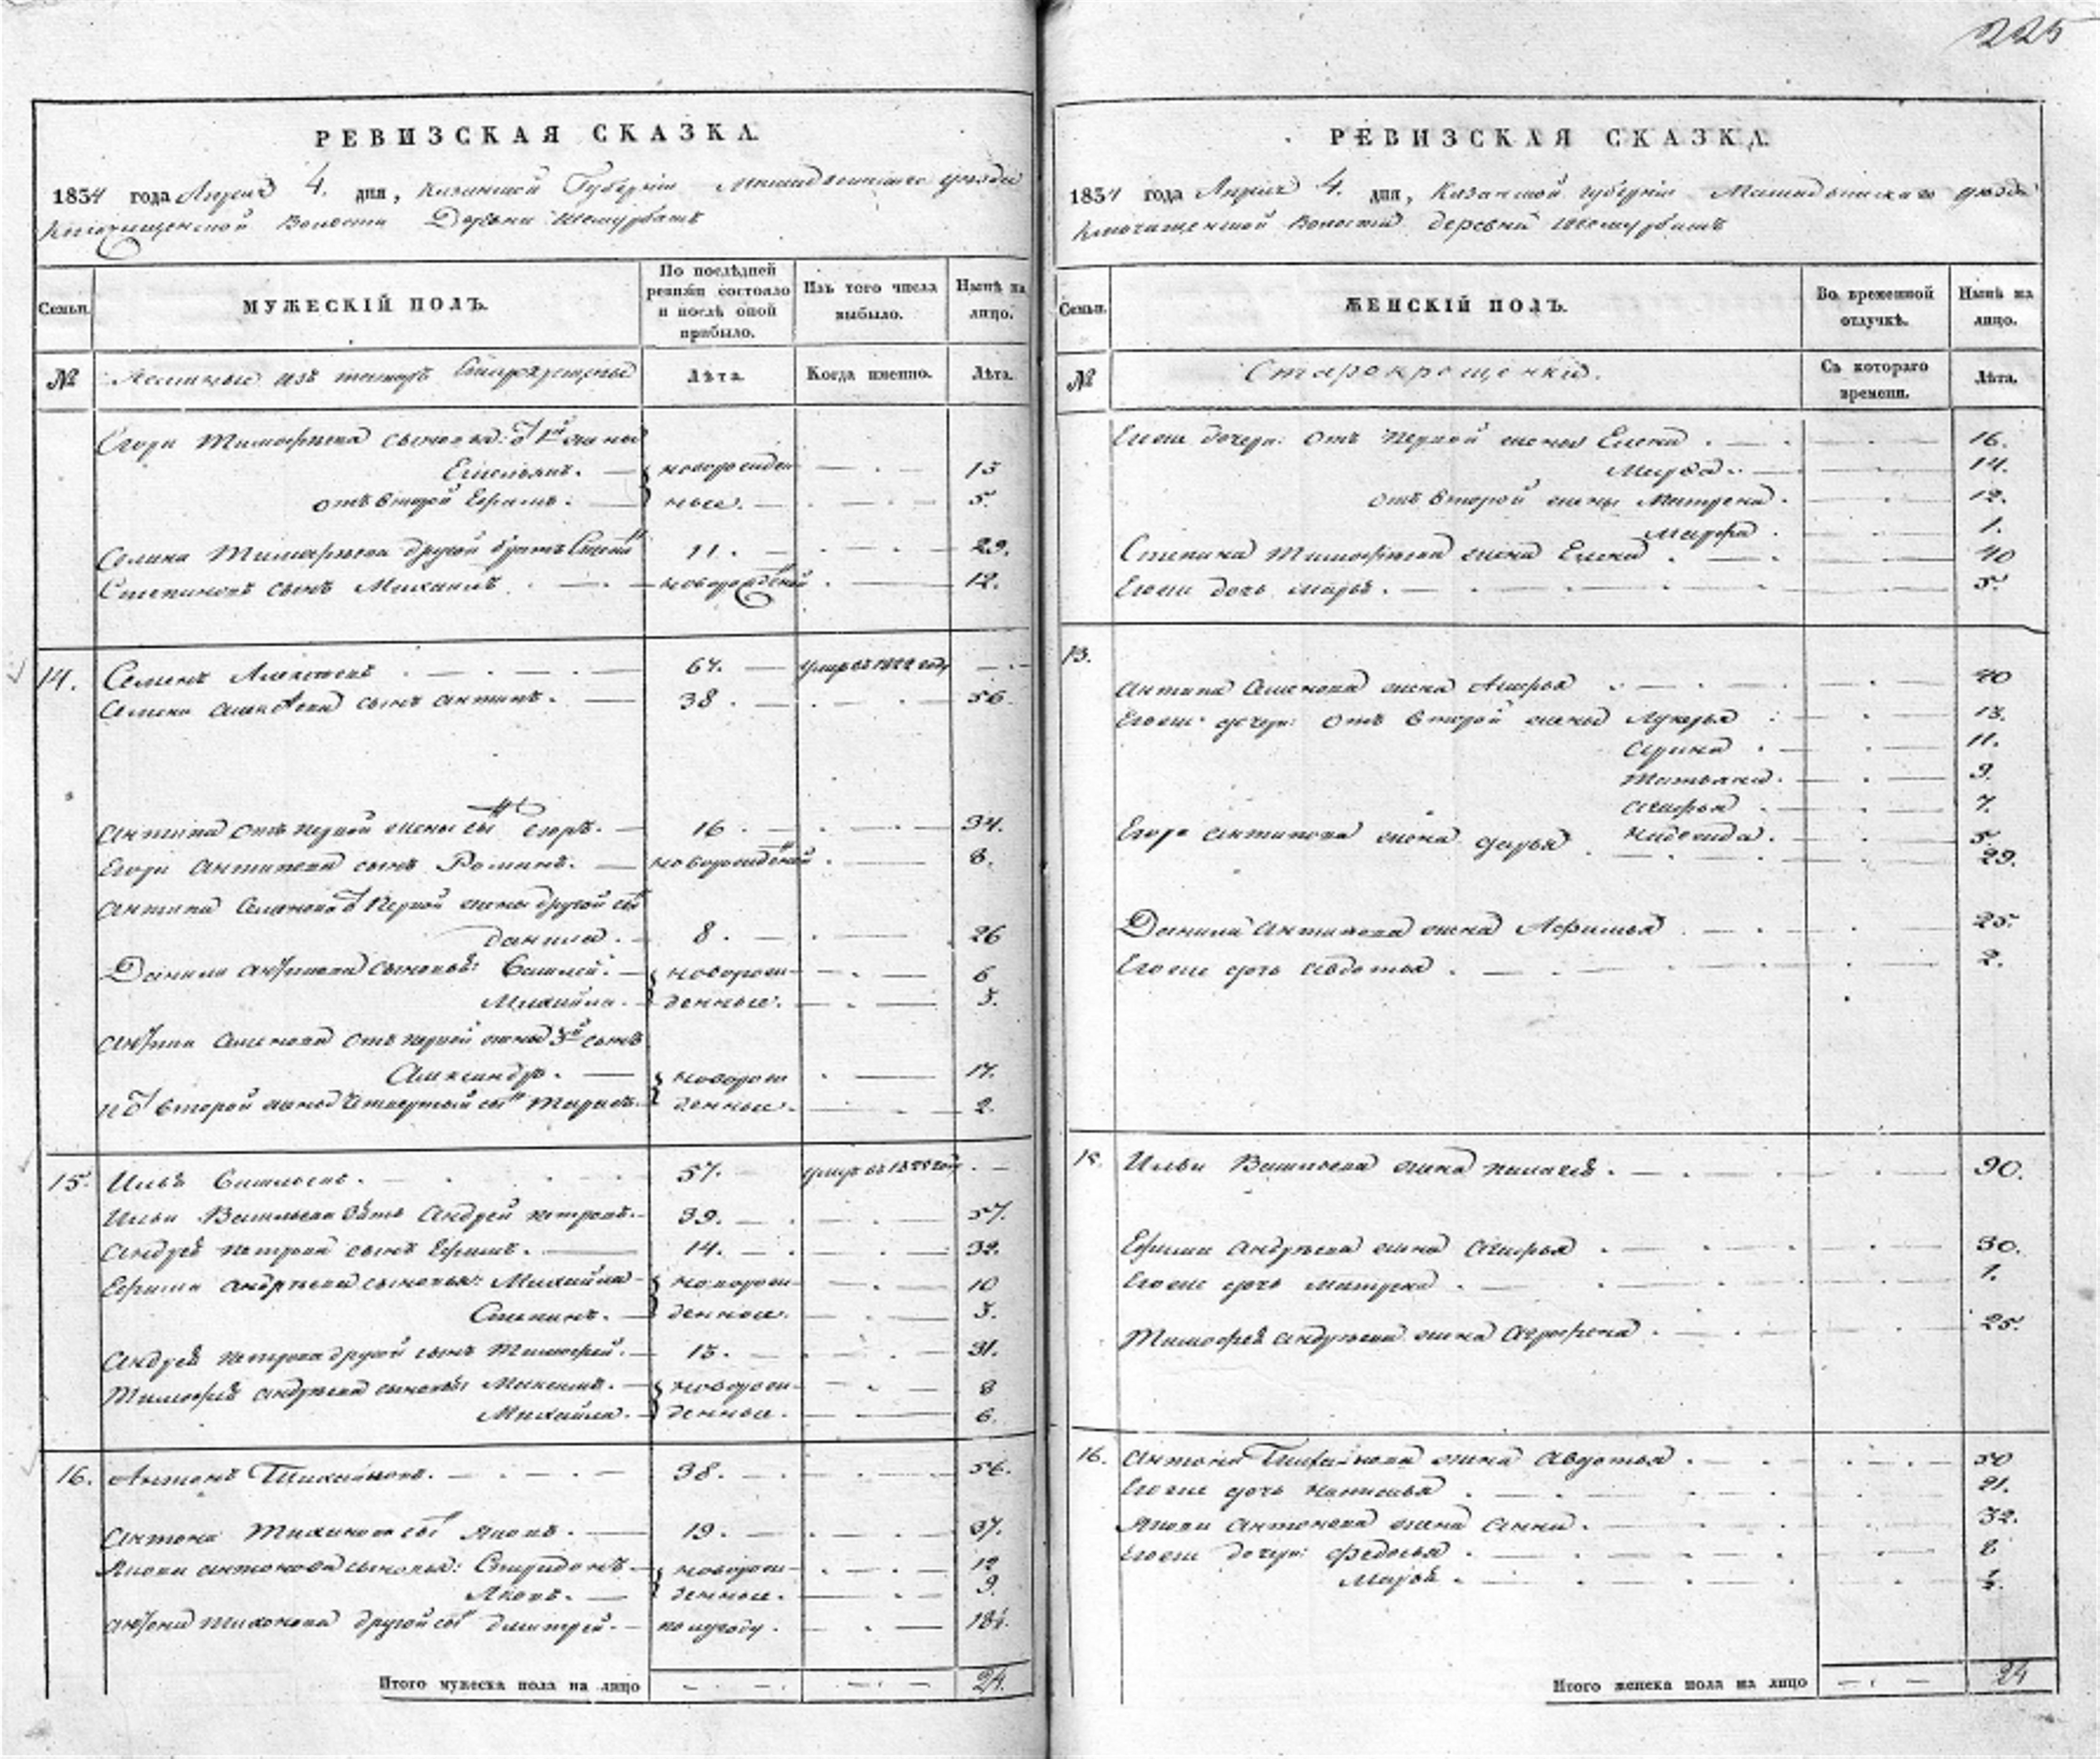 225
РЕВИЗСКАЯ СКАЗКА
1834 года Апреля 4. дня, Казанской Губернiи уезда
Ключищенской Волости Деревни Шемурбашъ
Семьи.
МУЖЕСКІЙ ПОЛЪ.
По послѣдней ревизіи состояло и послѣ оной прибыло.
Изъ того числа выбыло.
Нынѣ на лицо.
№
изъ татаръ Старокрещены
Лѣта.
Когда именно.
Лѣта.
Егора Тимофеева сыновья: от 1й жены
Емельянъ. новорожден 13
отъ второй Ефимъ. ные. 5
Тимофеева другой братъ 11. 29.
Степановъ сынъ Михаилъ новорожденой 12.
14. Семенъ Алексеевъ 67. умеръ въ году
Семена Алексеева сынъ Антипъ. 38. 56.
Антипа отъ первой жены сынъ Егоръ. 16. 34.
Егора Антипова сынъ Романъ. новорожденой 8.
Антипа Семенова от первой жены другой сын
Данила. 8. 26
Данила Антипова сыновья: Василей. новорож- 6
Михайла. денные. 3.
Антипа Семенова отъ первой жены 3й сынъ
Александръ. новорож 17.
и от второй жены четвертый сынъ Тарасъ. денные. 2.
15. Илья Васильевъ. 57. умеръ въ году
Ильи Васильева зять Андрей Петровъ. 39. 57.
Андрея Петрова сынъ Ефимъ. 14. 32.
Ефима Андреева сыновья: Михайла новорож- 10
Степанъ. денные. 3.
Андрея Петрова другой сынъ Тимофей. 13. 31.
Тимофея Андреева сыновья Максимъ. новорож- 8
Михайла. денные. 6.
16. Антонъ Тихоновъ. 38. 56.
Антона Тихонова сын Яковъ. 19. 37.
Якова Антонова сыновья: Спиридонъ новорож- 12
Яковъ. денные. 9.
Антона Тихонова другой сын Дмитрей. полугоду. 18½.
Итого мужеска пола на лицо 24.
РЕВИЗСКАЯ СКАЗКА
1834 года Апреля 4. дня, Казанской губернiи уезда
Ключищенской Волости деревни Шемурбашъ
Семьи.
ЖЕНСКІЙ ПОЛЪ.
Во временной отлучкѣ.
Нынѣ на лицо.
№
Старокрещенки.
Съ котораго времени.
Лѣта.
Егоже дочери: отъ первой жены Елена 16.
Марфа. 14.
отъ второй жены Матрена. 12.
Марфа. 1.
Степана Тимофеева жена Елена 40
Егоже дочь Марья. 5.
13.
Антипа Семенова жена 40
Егоже дочери: отъ второй жены Лукерья 13.
Арина 11.
Татьяна. 9.
7.
Надежда. 5.
Егора Антипова жена Дарья 29.
Данилы Антипова жена Афимья 25.
Егоже дочь Авдотья 2.
15. Ильи Васильева жена 90.
Ефима Андреева жена 30.
Егоже дочь Матрена 1.
Тимофея Андреева жена Аграфена 25.
16. Антона Тихонова жена Авдотья 50
Егоже дочь 21.
Якова Антонова жена Анна. 32.
Егоже дочери: Федосья 8
Марья ½.
Итого женска пола на лицо 24